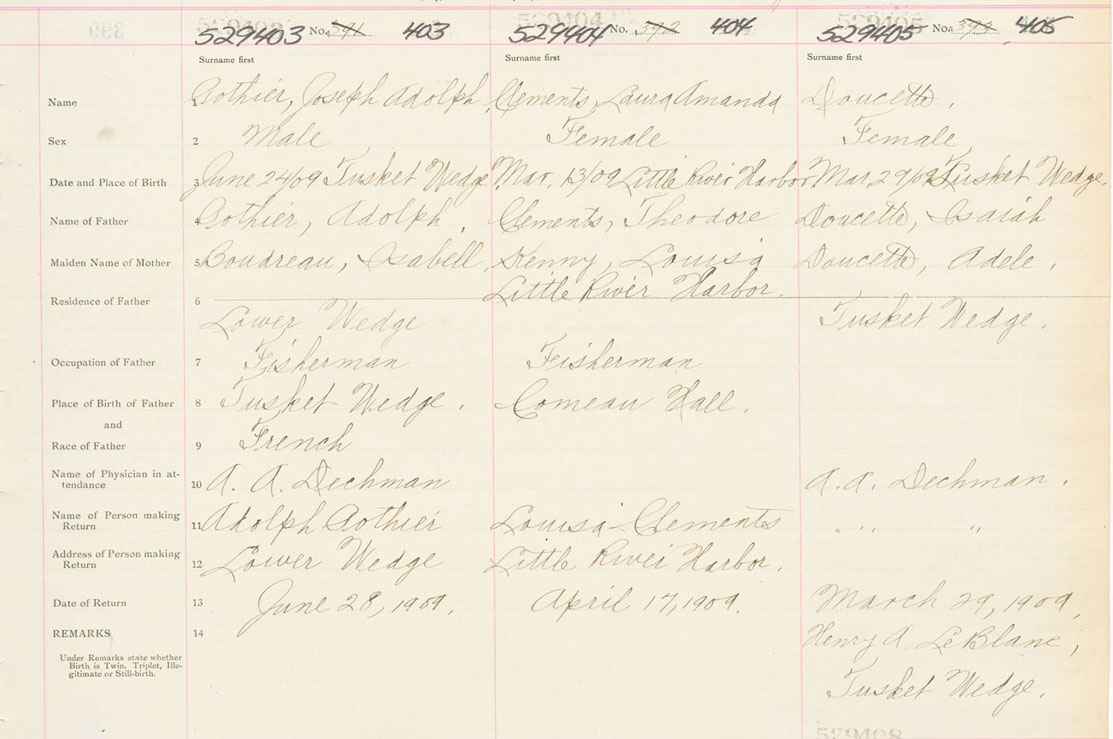 529403 No. 391 403 529404 No. 392 404 529405 No. 393 405
Surname first Surname first Surname first
Name Pothier, Joseph Adolph, Clements, Laura Amanda Doucette,
Sex 2 Male Female Female
Date and Place of Birth 3 June 24/09 Tusket Wedge Mar. 13/09 Little River Harbor Mar. 29/09 Tusket Wedge,
Name of Father 4 Pothier, Adolph, Clements, Theodore Doucette, Isaiah
Maiden Name of Mother 5 Boudreau, Isabell, Kenny, Louisa Doucette, Adele,
Little River Harbor.
Residence of Father 6
Lower Wedge Tusket Wedge.
Occupation of Father 7 Fisherman Feisherman
Place of Birth of Father 8 Tusket Wedge. Comeau Hall.
and
Race of Father 9 French
Name of Physician in at-
tendance 10 A. A. Dechman A. A. Dechman.
Name of Person making
Return 11 Adolph Pothier Louisa Clements " " " "
Address of Person making
Return 12 Lower Wedge Little River Harbor.
Date of Return 13 June 28, 1909. April 17, 1909. March 29, 1909,
REMARKS 14 Henry A. LeBlanc,
Under Remarks state whether
Birth is Twin, Triplet, Ille-
gitimate or Still-birth.
Tusket Wedge.